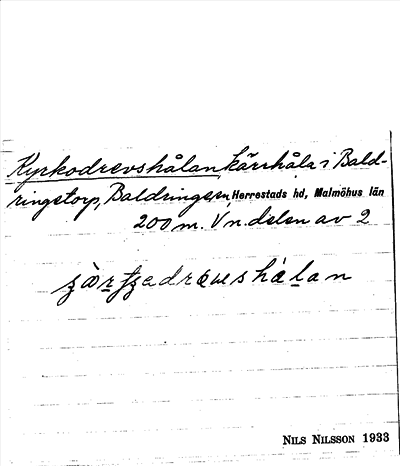 Kyrkodrevshålan, kärrhåla i Bald-
ringstorp, Baldringe sn, Herrestads hd, Malmöhus län
200 m. V n. delen av 2
NILS NILSSON 1933